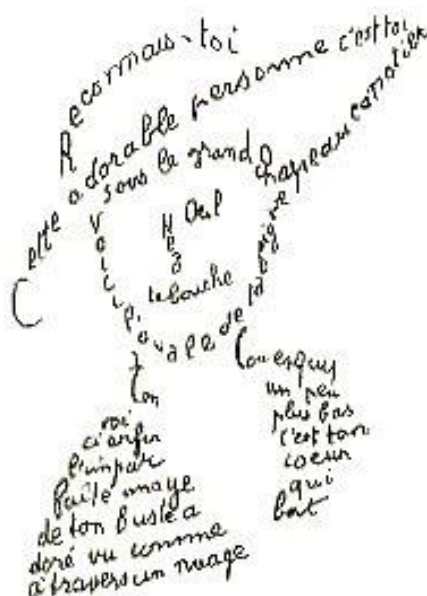 Reconnais-toi
Cette adorable personne c'est toi
sous le grand chapeau canotier
Oeil
Nez
la bouche
Voici l'ovale de ta figure
Ton
Cou exquis
voi
ci enfin
l'impar
faite image
de ton buste a
doré vu comme
à travers un nuage
un peu
plus bas
c'est ton
coeur
qui
bat